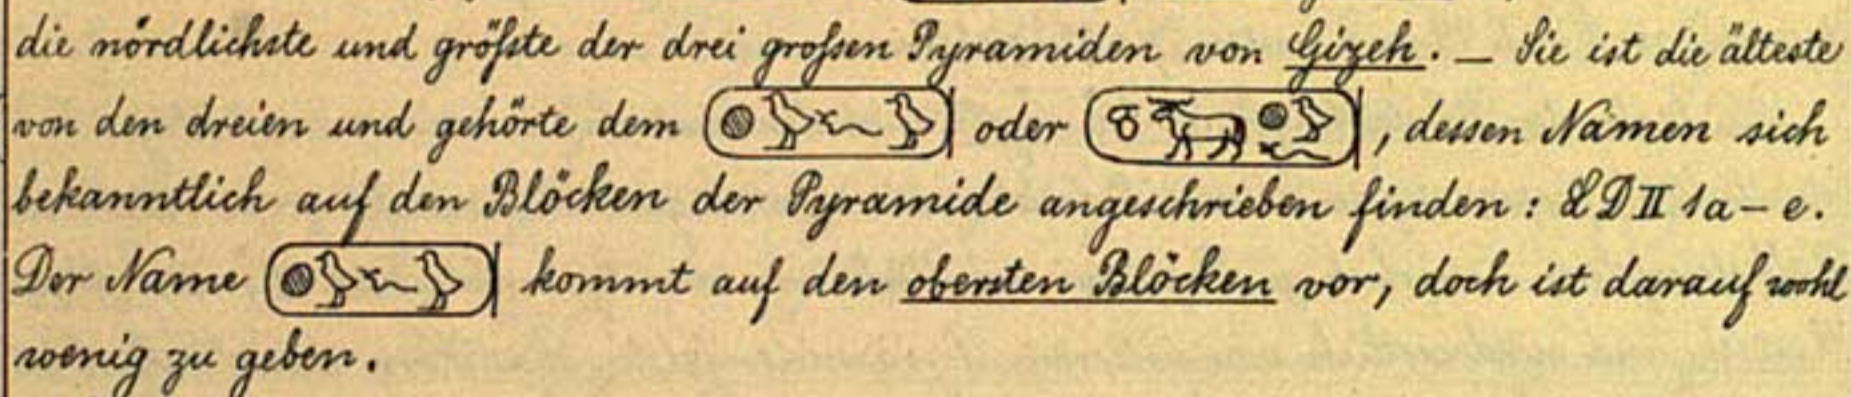 die nördlichste und größte der drei großen Pyramiden von Gizeh. — Sie ist die älteste
von den dreien und gehörte dem 𓍹𓐍𓅱𓆑𓅱𓍺 oder 𓍹𓎸𓃝𓐍𓅱𓆑𓍺, dessen Namen sich
bekanntlich auf den Blöcken der Pyramide angeschrieben finden: LD II 1a – e.
Der Name 𓍹𓐍𓅱𓆑𓅱𓍺 kommt auf den obersten Blöcken vor, doch ist darauf wohl
wenig zu geben.